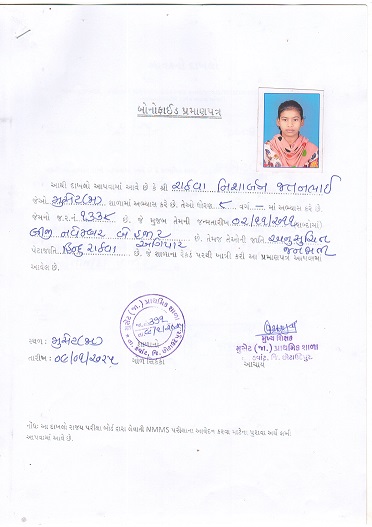 બોનોફાઈડ પ્રમાણપત્ર
આથી દાખલો આપવામાં આવે છે કે શ્રી રાઠવા નિશાબેન જતનભાઈ
જેઓ મુસેટ(જા) શાળામાં અભ્યાસ કરે છે. તેઓ ધોરણ ૮ વર્ગ — માં અભ્યાસ કરે છે.
જેમનો જ.ર.નં. ૧૩૩૮ છે. જે મુજબ તેમની જન્મતારીખ ૦૨/૧૧/૨૦૧૧ (શબ્દોમાં)
બીજી નવેમ્બર બે હજાર અગિયાર છે. તેમજ તેઓની જાતિ અનુસુચિત જનજાતી
પેટાજાતિ હિન્દુ રાઠવા છે. જે શાળાના રેકર્ડ પરથી ખાત્રી કરી આ પ્રમાણપત્ર આપવામાં
આવેલ છે.
સ્થળ : મુસેટ(જા)
તારીખ : ૦૮/૦૧/૨૦૨૫
શાળાનો
ગોળ સિક્કો
મુખ્ય શિક્ષક
મુસેટ (જા.) પ્રાથમિક શાળા
તા. કવાંટ, જિ. છોટાઉદેપુર
આચાર્ય
નોંધઃ આ દાખલો રાજ્ય પરીક્ષા બોર્ડ દ્વારા લેવાની NMMS પરીક્ષાના આવેદન કરવા માટેના પુરાવા અર્થે કાઢી
આપવામાં આવે છે.